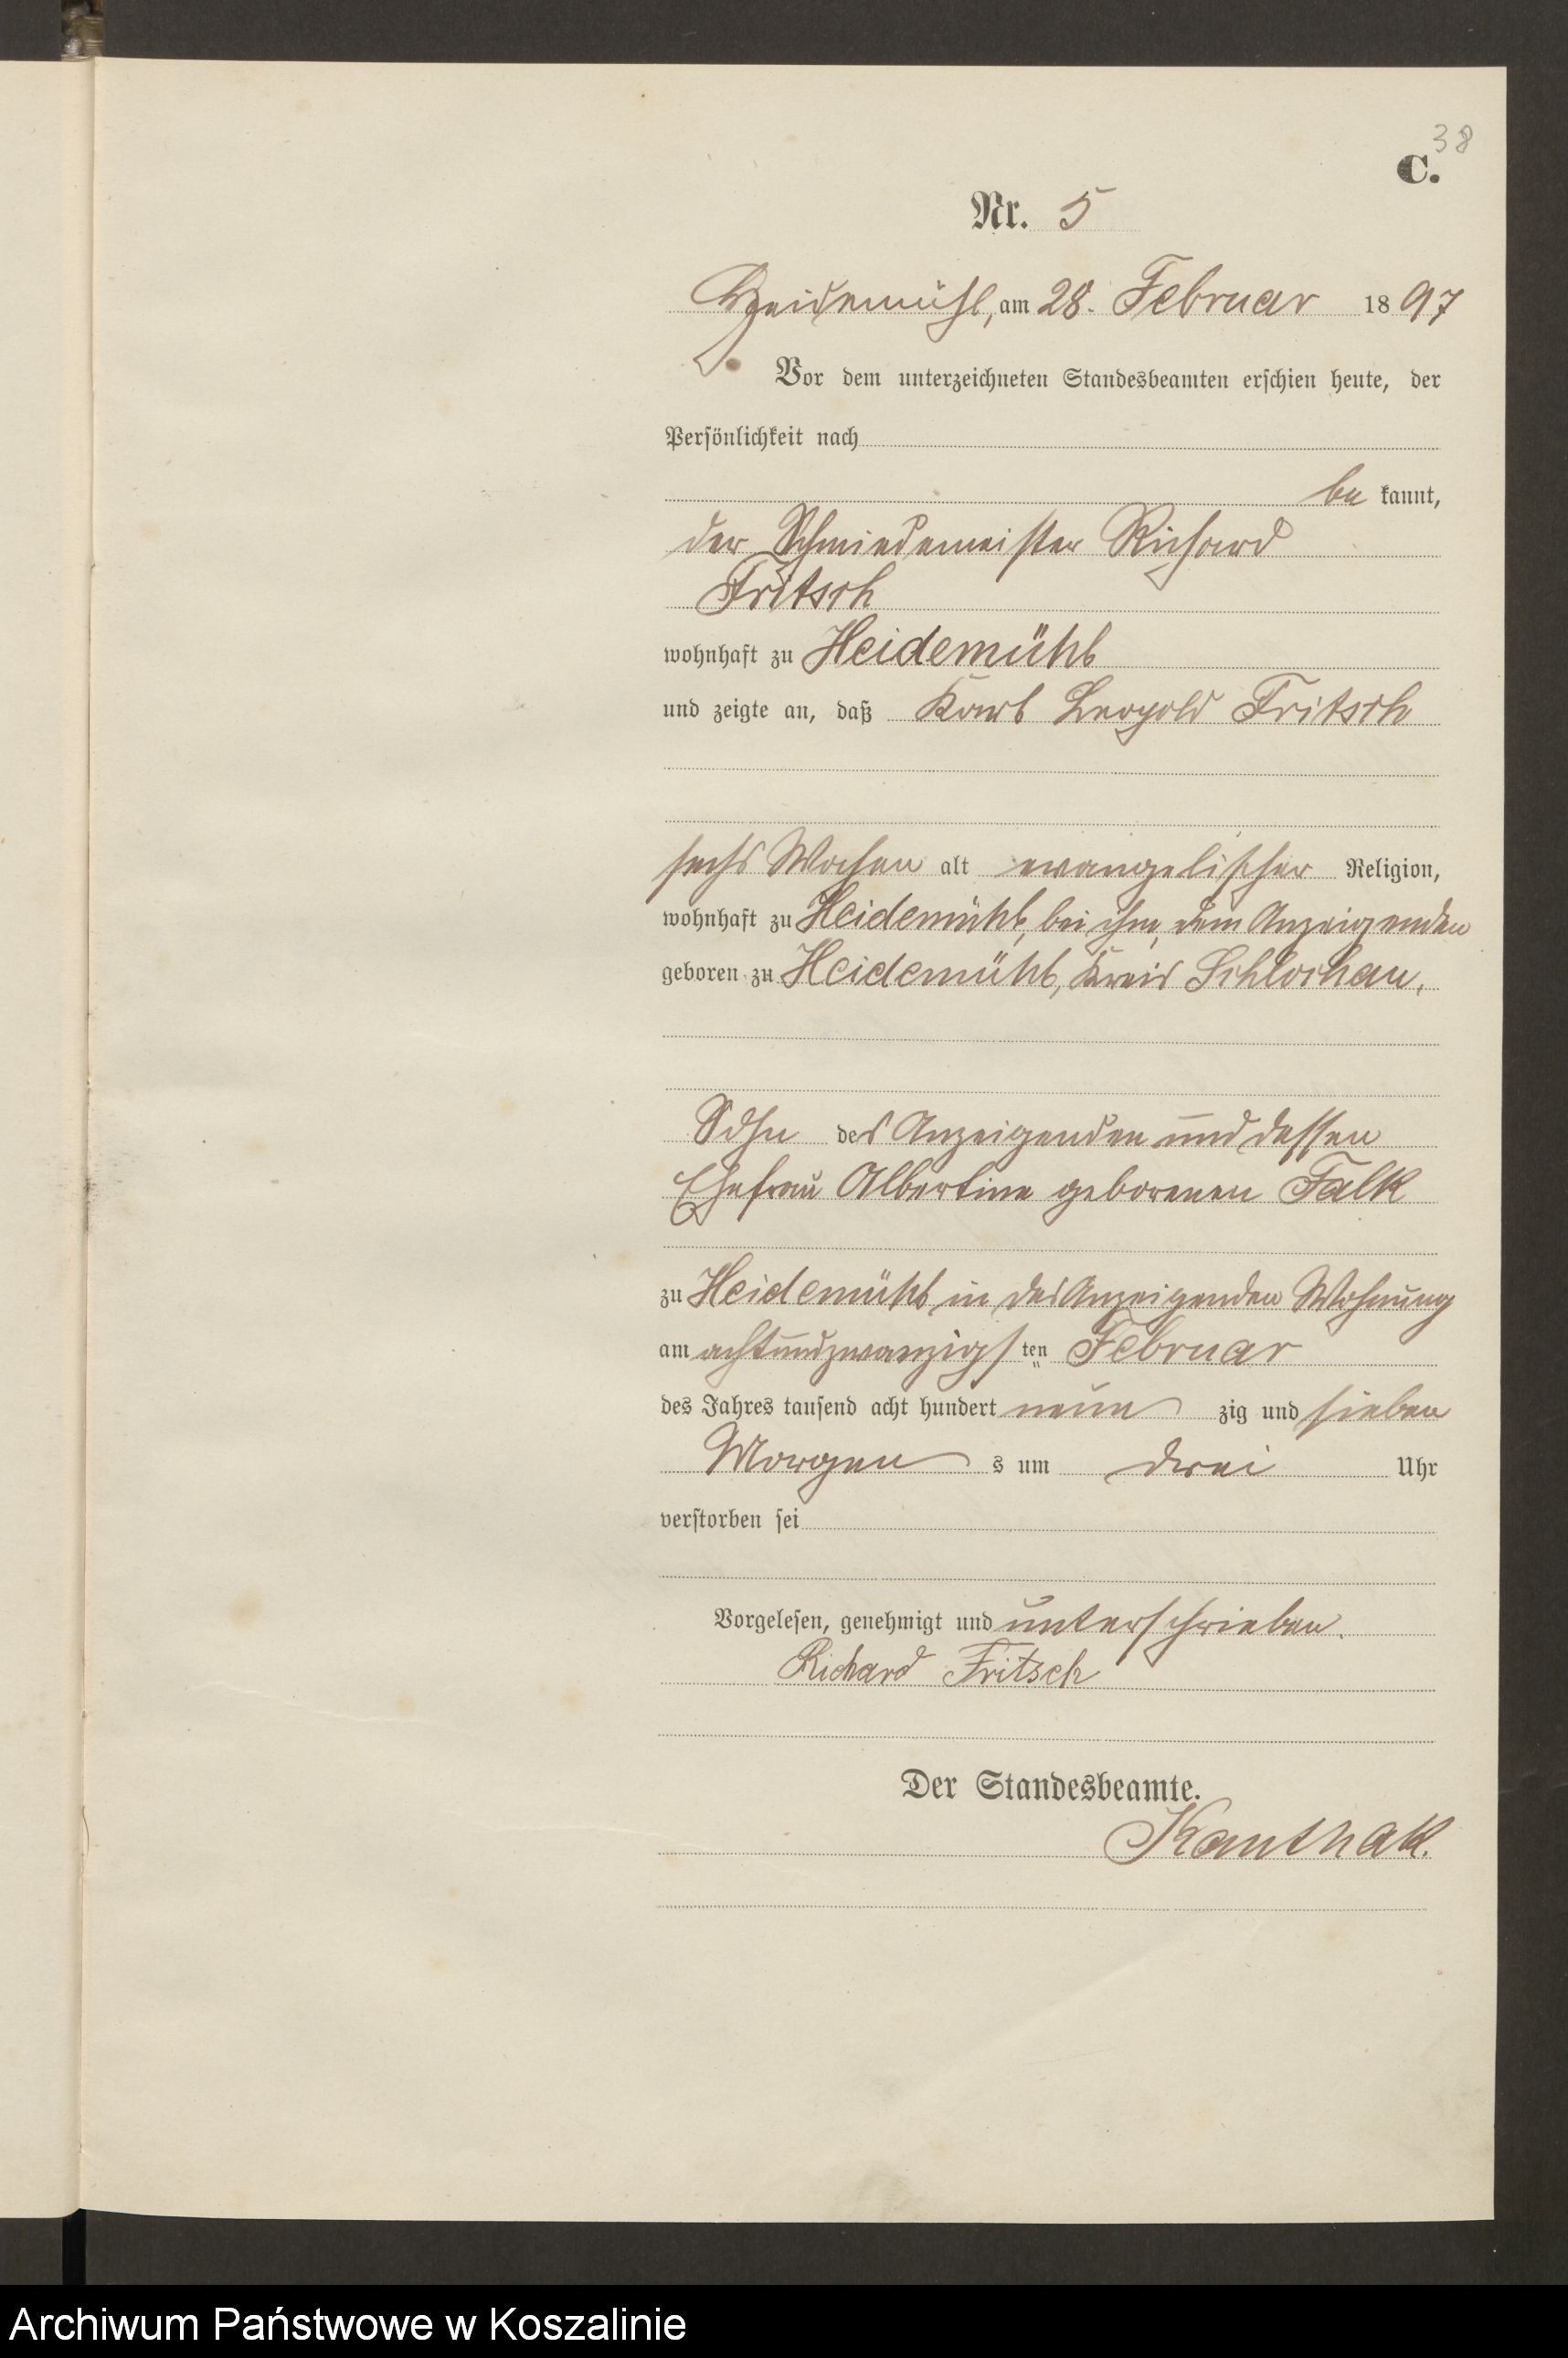 38
C.
Nr. 5
Heidemühl, am 28. Februar 1897
Vor dem unterzeichneten Standesbeamten erschien heute, der
Persönlichkeit nach
be kannt,
der Schmiedemeister Richard
Fritsch
wohnhaft zu Heidemühl
und zeigte an, daß Karl Leopold Fritsch
sechs Wochen alt evangelischer Religion,
wohnhaft zu Heidemühl, bei ihm, dem Anzeigenden
geboren zu Heidemühl, Kreis Schlochau,
Sohn des Anzeigenden und dessen
Ehefrau Albertine geborenen Falk
zu Heidemühl in des Anzeigenden Wohnung
am achtundzwanzigsten Februar
des Jahres tausend acht hundert neun zig und sieben
Morgens um drei Uhr
verstorben sei
Vorgelesen, genehmigt und unterschrieben.
Richard Fritsch
Der Standesbeamte.
Kanthak.
Archiwum Państwowe w Koszalinie